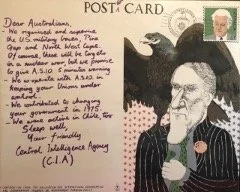 POST CARD
Dear Australians,
- We organised and supervise
the U.S. military bases, Pine
Gap and North West Cape.
Of course, these will be targets
in a nuclear war, but we promise
to give A.S.I.O. 5 minutes warning
- We co-operate with A.S.I.O. in
keeping your Unions under
control.
- We contributed to changing
your government in 1975.
- We were active in Chile, too
Sleep well,
Your friendly
Central Intelligence Agency
(C.I.A)